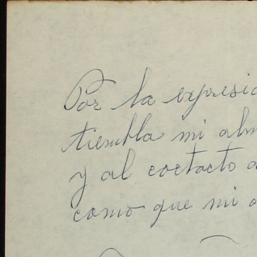 Por la expresió
tiembla mi alm
y al coctacto d
como que mi a